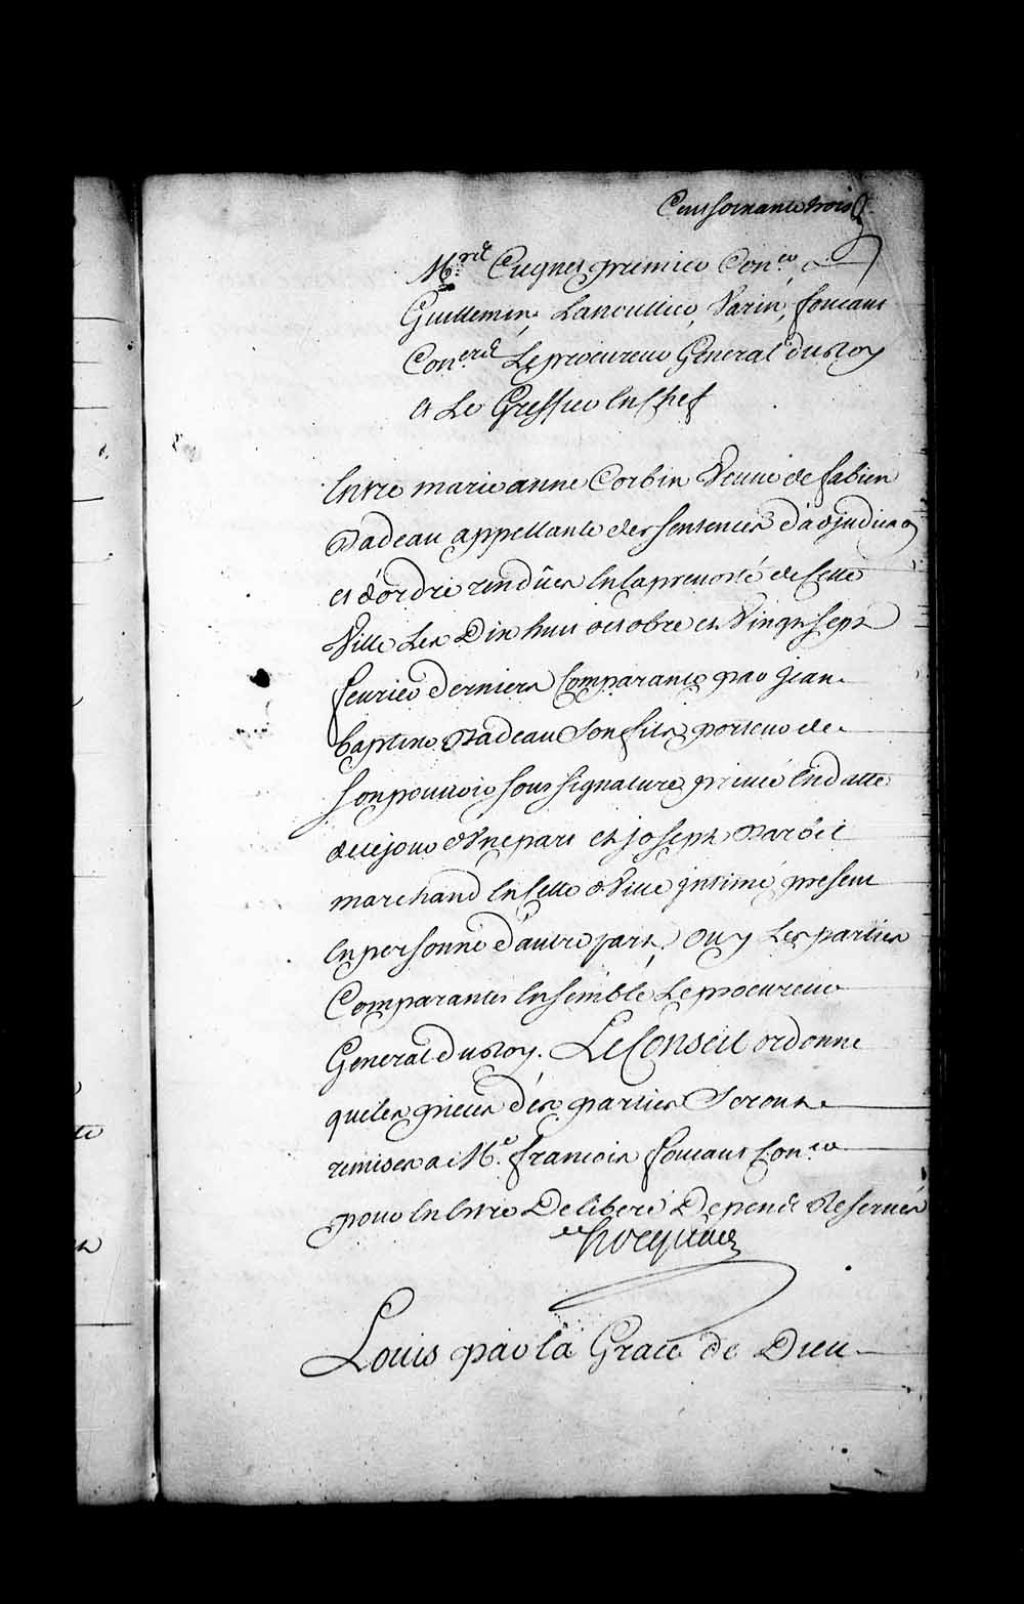 Cent soixante trois
M.rs Cugnet premier Con.er
Guillemin, Lanoullier, Varin, foucaut
Con.ers Le procureur General du Roy
et Le Greffier en chef
Entre marie anne Corbin Veuve de fabien
Badeau appellante des sentences d'adjudica.on
et d'ordre rendües en la prevosté de Cette
Ville Les Dix huit octobre et Vingt sept
fevrier derniers Comparante par jean
baptiste Badeau son fils porteur de
son pouvoir sous signature privé en datte
de ce jour d'Une part et joseph
marchand en Cette Ville intimé present
en personne d'autre part, Ouy Les parties
Comparantes Ensemble Le procureur
General du Roy. Le Conseil ordonne
que les pieces des parties Seront
remises a M.e francois foucaut Con.er
pour en Estre Deliberé Depens Reservés
hocquart
Louis par la Grace de Dieu